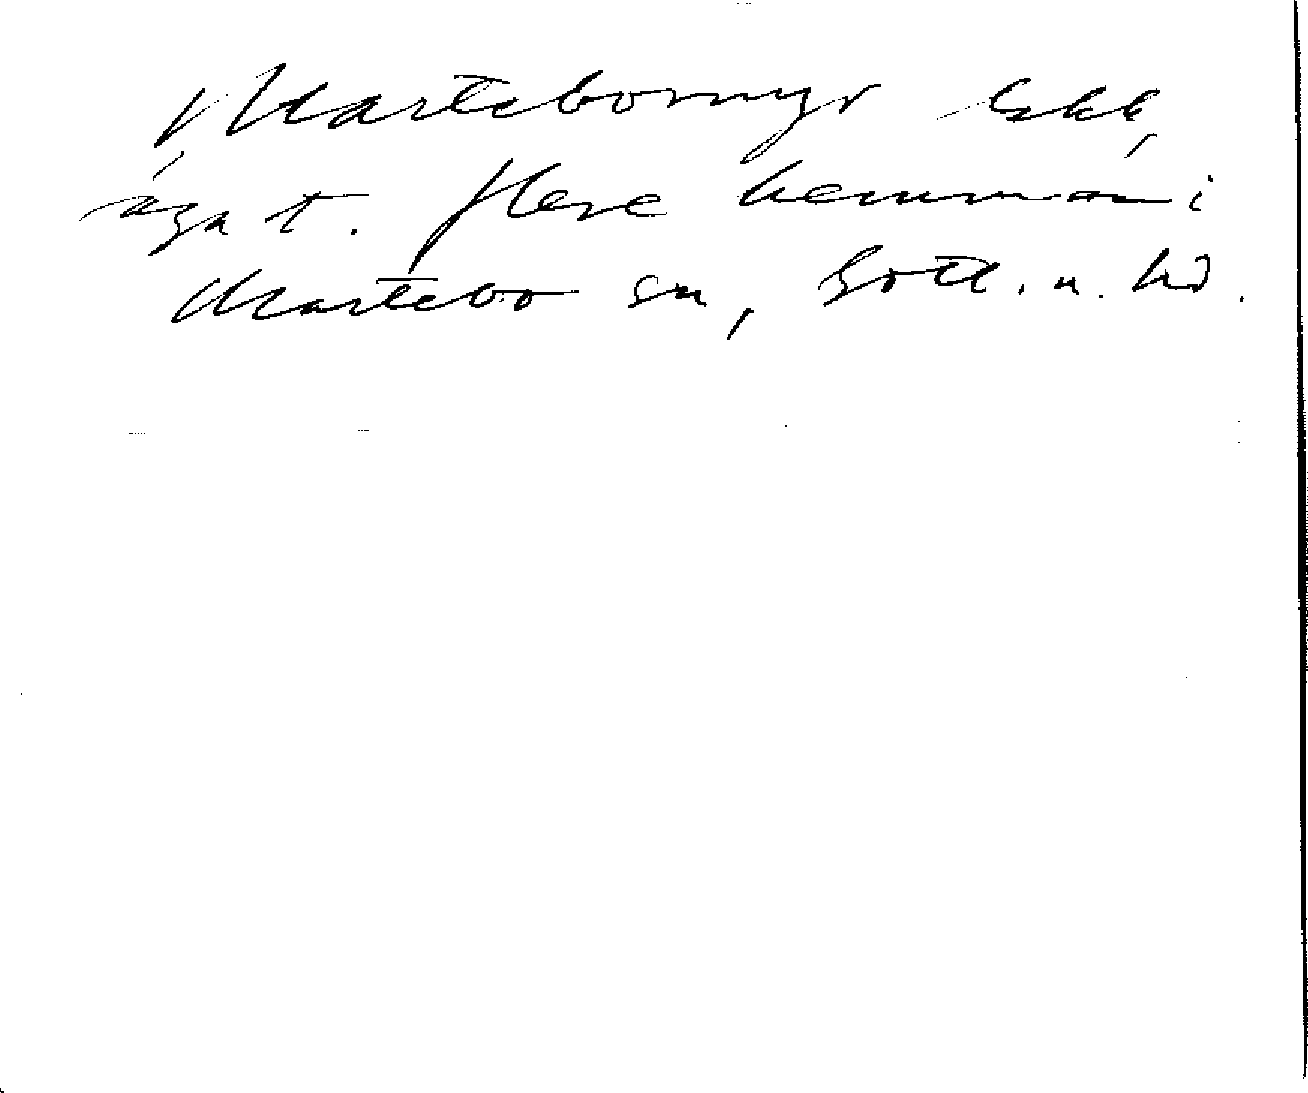 Martebomyr lskk,
ägat. flere hemman i
Martebo sn, Gotl. n. hd.